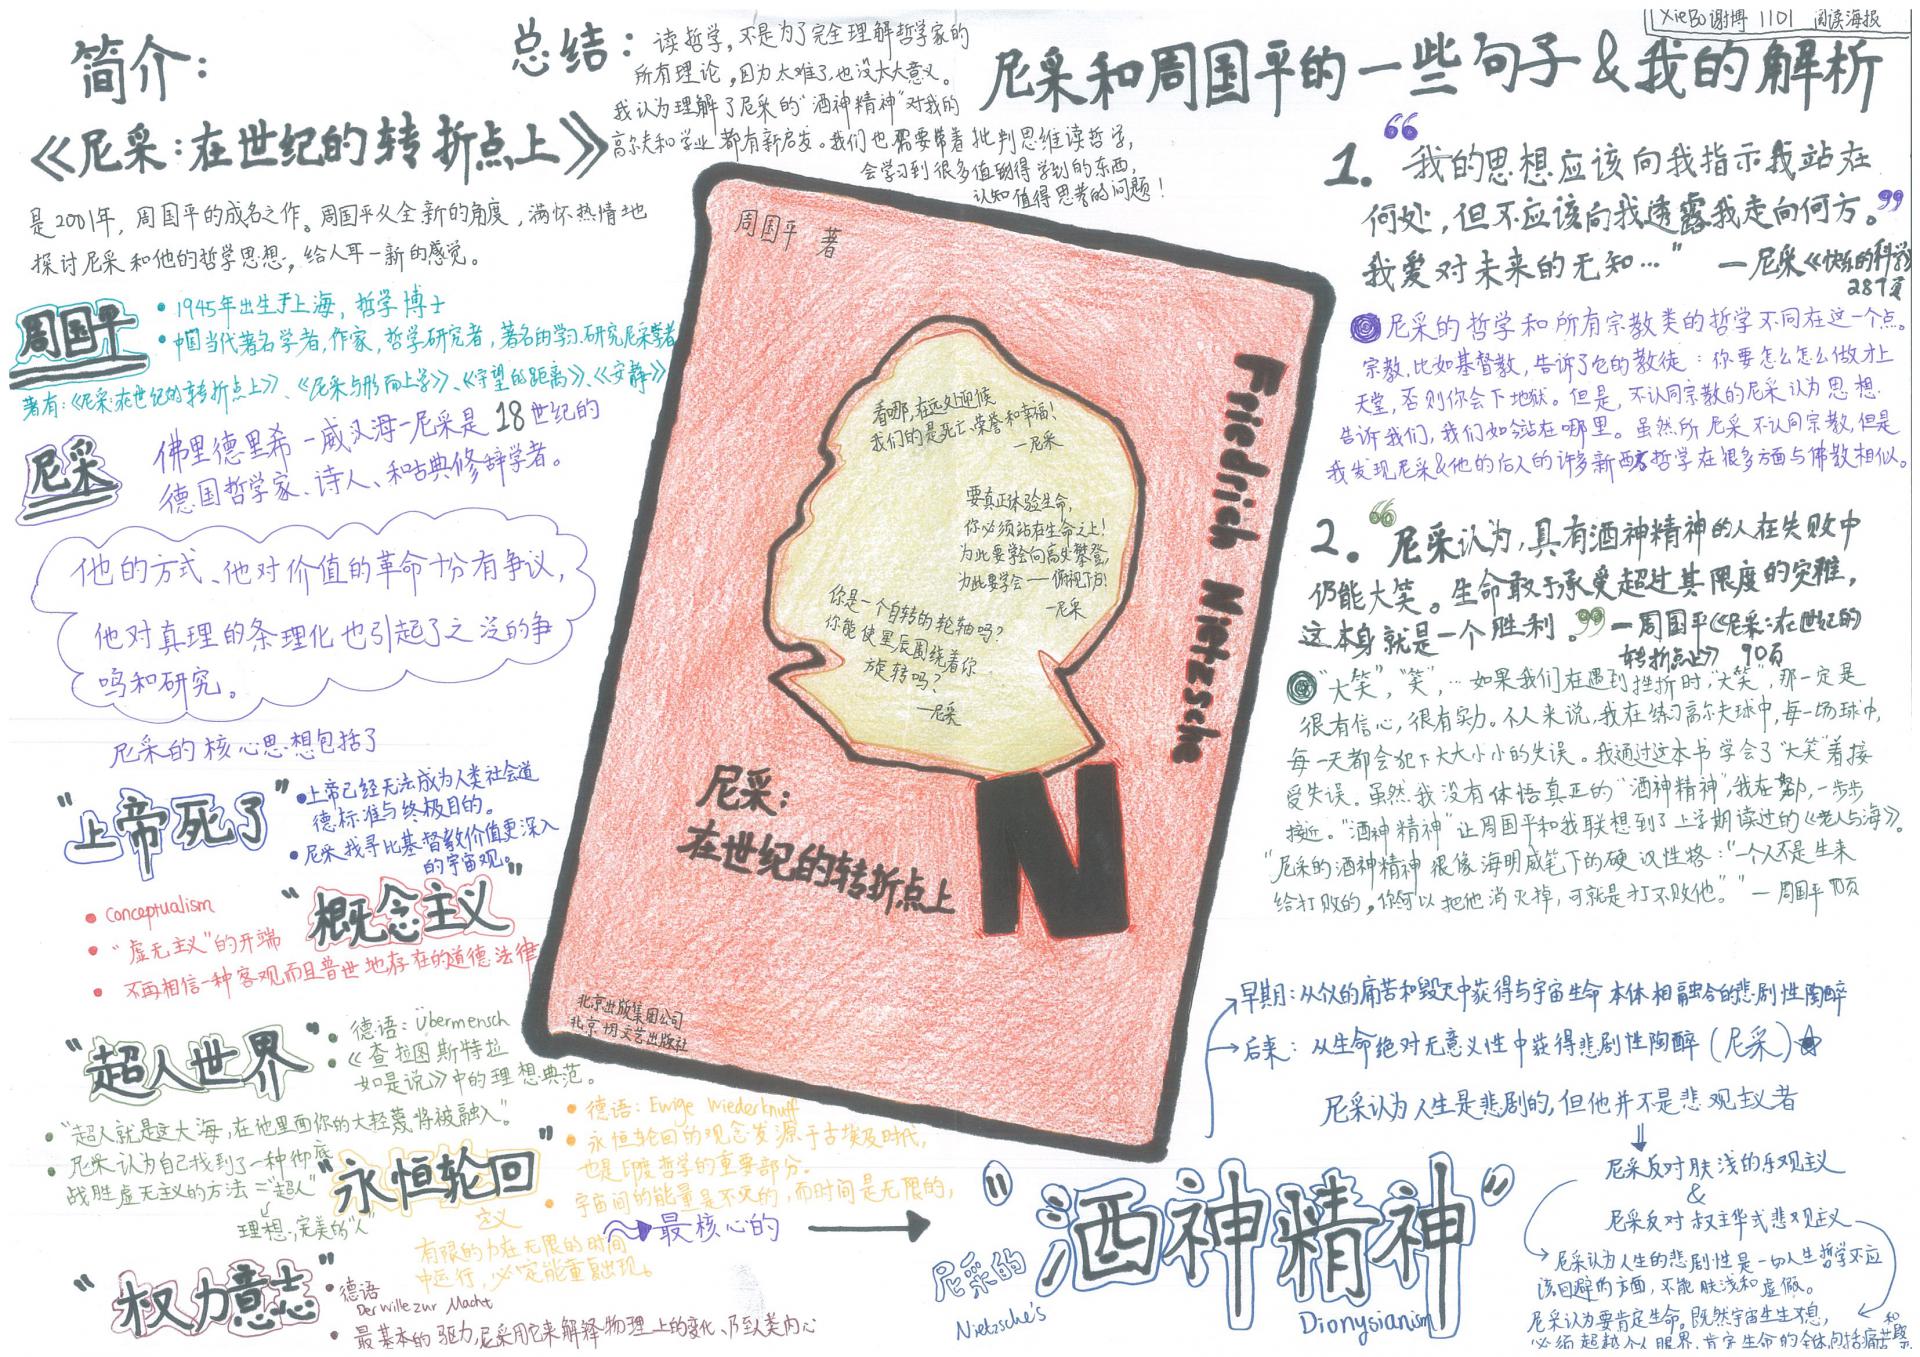 XieBo谢博 1101 阅读海报
简介：
《尼采：在世纪的转折点上》
是2001年，周国平的成名之作。周国平从全新的角度，满怀热情地
探讨尼采和他的哲学思想，给人耳一新的感觉。
周国平
• 1945年出生于上海，哲学博士
• 中国当代著名学者，作家，哲学研究者，著名的学习.研究尼采学者
著有：《尼采：在世纪的转折点上》、《尼采与形而上学》、《守望的距离》、《安静》
尼采
佛里德里希－威汉海－尼采是18世纪的
德国哲学家、诗人、和古典修辞学者。
他的方式、他对价值的革命十分有争议，
他对真理的条理化也引起了广泛的争
鸣和研究。
尼采的核心思想包括了
“上帝死了”
• 上帝已经无法成为人类社会道
德标准与终极目的。
• 尼采找寻比基督教价值更深入
的宇宙观。
“概念主义”
• Conceptualism
• “虚无主义”的开端
• 不再相信一种客观而且普世地存在的道德法律
“超人世界”
• 德语：Übermensch
• 《查拉图斯特拉
如是说》中的理想典范。
• “超人就是这大海，在他里面你的大轻蔑将被融入”
• 尼采认为自己找到了一种彻底
战胜虚无主义的方法＝“超人”
理想，完美的“人”
“永恒轮回”
• 德语：Ewige Wiederknuff
• 永恒轮回的观念发源于古埃及时代，
也是印度哲学的重要部分。
• 宇宙间的能量是不灭的，而时间是无限的，
定义
有限的力在无限的时间
中运行，必定能重复出现。
“权力意志”
• 德语
Der Wille zur Macht
• 最基本的驱力，尼采用它来解释物理上的变化、乃至人类内心
最核心的
总结：
读哲学，不是为了完全理解哲学家的
所有理论，因为太难了，也没太大意义。
我认为理解了尼采的“酒神精神”对我的
高尔夫和学业都有新启发。我们也需要带着批判思维读哲学，
会学习到很多值得学到的东西，
认知值得思考的问题！
周国平 著
看哪，在远处迎候
我们的是死亡、荣誉和幸福！
—尼采
要真正体验生命，
你必须站在生命之上！
为此要学会向高处攀登，
为此要学会——俯视下方！
—尼采
你是一个自转的轮轴吗？
你能使星辰围绕着你
旋转吗？
—尼采
Friedrich Nietzsche
N
尼采：
在世纪的转折点上
北京出版集团公司
北京十月文艺出版社
尼采和周国平的一些句子&我的解析
1. “我的思想应该向我指示我站在
何处，但不应该向我透露我走向何方。
我爱对未来的无知…”
—尼采《快乐的科学》
287页
尼采的哲学和所有宗教类的哲学不同在这一个点。
宗教，比如基督教，告诉了它的教徒：你要怎么怎么做才上
天堂，否则你会下地狱。但是，不认同宗教的尼采认为思想
告诉我们，我们如今站在哪里。虽然所尼采不认同宗教，但是
我发现尼采&他的后人的许多新西方哲学在很多方面与佛教相似。
2. “尼采认为，具有酒神精神的人在失败中
仍能大笑。生命敢于承受超过其限度的灾难，
这本身就是一个胜利。”
—周国平《尼采：在世纪的
转折点上》 90页
“大笑”，“笑”，…如果我们在遇到挫折时，“大笑”，那一定是
很有信心，很有实力。个人来说，我在练习高尔夫球中，每一场球中，
每一天都会犯下大大小小的失误。我通过这本书学会了“大笑”着接
受失误。虽然我没有体语真正的“酒神精神”，我在努力，一步步
接近。“酒神精神”让周国平和我联想到了上学期读过的《老人与海》。
“尼采的酒神精神很像海明威笔下的硬汉性格：“一个人不是生来
给打败的，你可以把他消灭掉，可就是打不败他””—周国平 90页
早期：从个人的痛苦和毁灭中获得与宇宙生命本体相融合的悲剧性陶醉
后来：从生命绝对无意义性中获得悲剧性陶醉（尼采）
尼采认为人生是悲剧的，但他并不是悲观主义者
尼采反对肤浅的乐观主义
&
尼采反对叔本华式悲观主义
尼采认为人生的悲剧性是一切人生哲学不应
该回避的方面，不能肤浅和虚假。
尼采认为要肯定生命。既然宇宙生生不息，
必须超越个人眼界，肯定生命的全体包括痛苦和
尼采的
“酒神精神”
Nietzsche's
Dionysianism